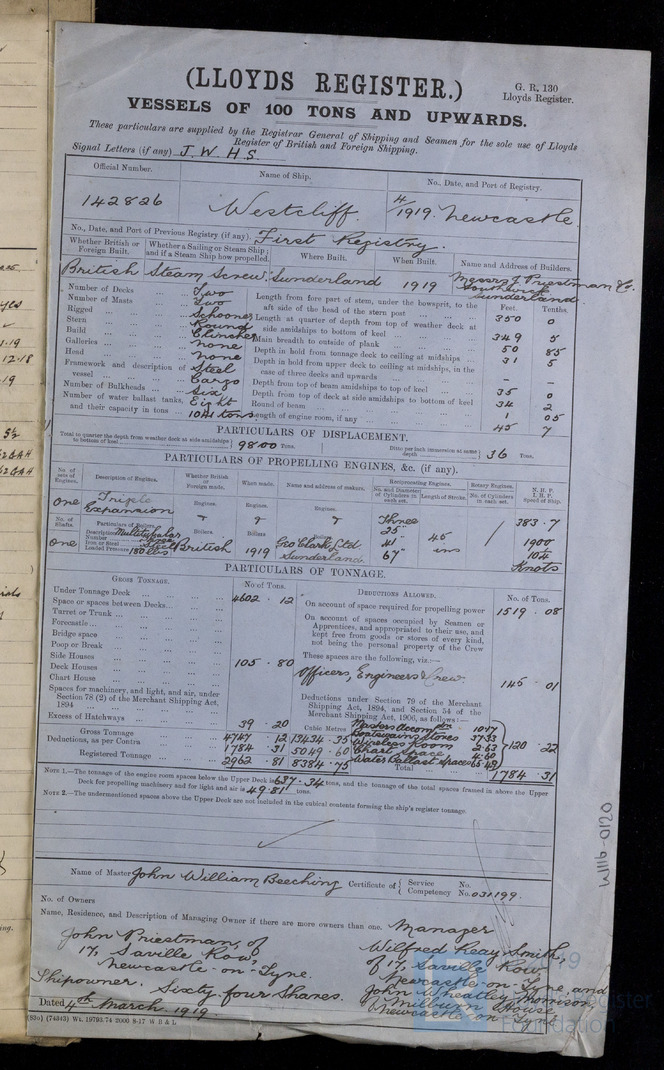 (LLOYDS REGISTER.)
G. R. 130
Lloyds Register.
VESSELS OF 100 TONS AND UPWARDS.
These particulars are supplied by the Registrar General of Shipping and Seamen for the sole use of Lloyds
Register of British and Foreign Shipping.
Signal Letters (if any) J. W. H. S.
Official Number. Name of Ship. No., Date, and Port of Registry.
142826 Westcliff 4/1919. Newcastle
No., Date, and Port of Previous Registry (if any). First Registry.
Whether British or Foreign Built. Whether a Sailing or Steam Ship and if a Steam Ship how propelled. Where Built. When Built. Name and Address of Builders.
British Steam Screw Sunderland 1919 Messrs J. Priestman & Co. Southwick Sunderland.
Feet. Tenths.
Number of Decks Two
Number of Masts Two
Rigged Schooner
Stern Round
Build Clincher
Galleries None
Head None
Framework and description of vessel Steel Cargo
Number of Bulkheads Six
Number of water ballast tanks, and their capacity in tons Eight 1041 tons
Length from fore part of stem, under the bowsprit, to the aft side of the head of the stern post 350 0
Length at quarter of depth from top of weather deck at side amidships to bottom of keel 349 5
Main breadth to outside of plank 50 85
Depth in hold from tonnage deck to ceiling at midships 31 5
Depth in hold from upper deck to ceiling at midships, in the case of three decks and upwards - -
Depth from top of beam amidships to top of keel 35 0
Depth from top of deck at side amidships to bottom of keel 34 2
Round of beam 1 05
Length of engine room, if any 45 7
PARTICULARS OF DISPLACEMENT.
Total to quarter the depth from weather deck at side amidships to bottom of keel 9800 Tons. Ditto per inch immersion at same depth 36 Tons.
PARTICULARS OF PROPELLING ENGINES, &c. (if any).
No. of sets of Engines. Description of Engines. Whether British or Foreign made. When made. Name and address of makers. Reciprocating Engines. Rotary Engines. N. H. P. I. H. P. Speed of Ship.
No. and Diameter of Cylinders in each set. Length of Stroke. No. of Cylinders in each set.
One Triple Expansion
Engines. Engines. Engines.
Three 25" 41" 67" 45 ins 383.7 1900 10¼ Knots
No. of Shafts. Particulars of Boilers. Boilers Boilers Boilers
One Description Multitubular
Number Three
Iron or Steel Steel
Loaded Pressure 180 lbs
British 1919 Geo Clark Ltd. Sunderland
PARTICULARS OF TONNAGE.
GROSS TONNAGE. No of Tons.
Under Tonnage Deck 4602 . 12
Space or spaces between Decks
Turret or Trunk
Forecastle
Bridge space
Poop or Break
Side Houses
Deck Houses 105 . 80
Chart House
Spaces for machinery, and light, and air, under Section 78 (2) of the Merchant Shipping Act, 1894
Excess of Hatchways 39 . 20
Cubic Metres
Gross Tonnage 4747 . 12 13434 . 35
Deductions, as per Contra 1784 . 31 5049 . 60
Registered Tonnage 2962 . 81 8384 . 75
DEDUCTIONS ALLOWED. No. of Tons.
On account of space required for propelling power 1519 . 08
On account of spaces occupied by Seamen or Apprentices, and appropriated to their use, and kept free from goods or stores of every kind, not being the personal property of the Crew
These spaces are the following, viz.:—
Officers, Engineers & Crew. 145 . 01
Deductions under Section 79 of the Merchant Shipping Act, 1894, and Section 54 of the Merchant Shipping Act, 1906, as follows:—
Masters Accomdn
Boatswains Stores 37.33
Wireless Room 2.63
Chart Space 4.60
Water Ballast Spaces 65.49
120 . 22
Total 1784 . 31
NOTE 1.—The tonnage of the engine room spaces below the Upper Deck is 637.34 tons, and the tonnage of the total spaces framed in above the Upper
Deck for propelling machinery and for light and air is 49.81 tons.
NOTE 2.—The undermentioned spaces above the Upper Deck are not included in the cubical contents forming the ship's register tonnage.
Name of Master John William Beeching Certificate of { Service No. Competency No. 031199.
No. of Owners
Name, Residence, and Description of Managing Owner if there are more owners than one.
John Priestman, of
17, Saville Row,
Newcastle-on-Tyne.
Shipowner. Sixty four Shares.
Manager
Wilfred Reay Smith,
of 17, Saville Row,
Newcastle-on-Tyne and
John Wheatley Thomison,
Milburn House
Newcastle on Tyne
Dated 4th March 1919
(83o) (74343) Wt. 19793.74 2000 8-17 W B & L
W116-0120